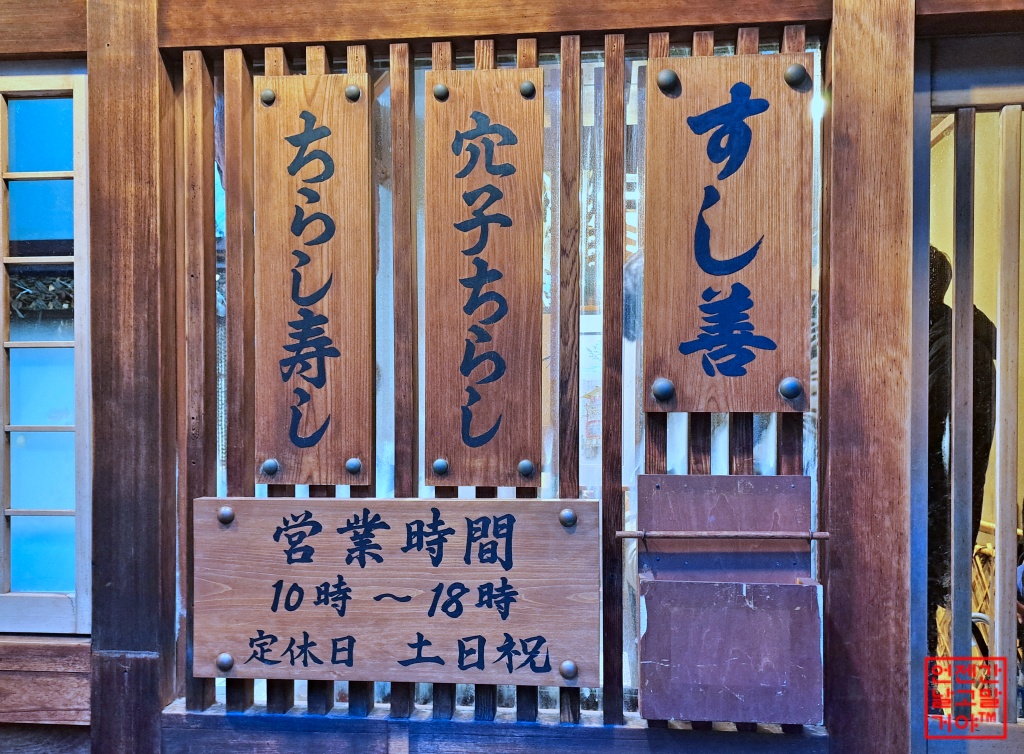 すし善
穴子ちらし
ちらし寿し
営業時間
10時～18時
定休日 土日祝
언젠가
날고말
거야™